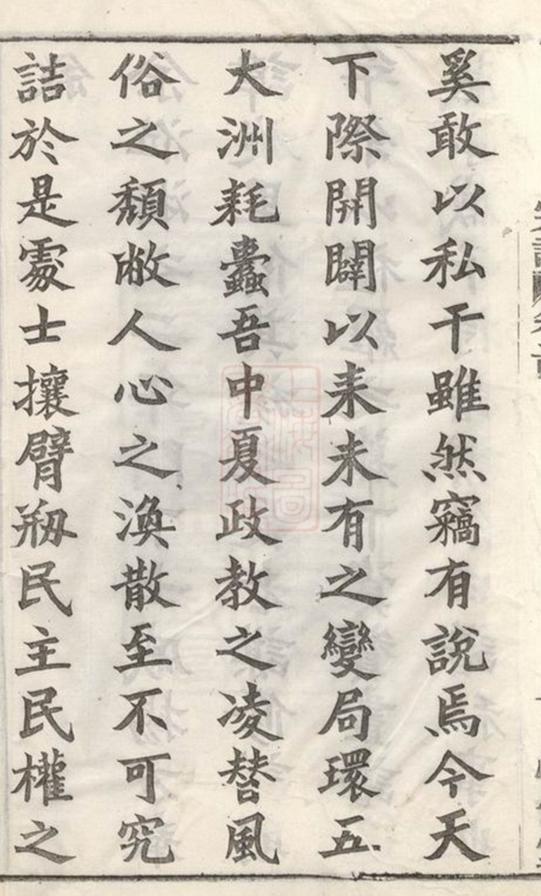 奚敢以私干雖然竊有說焉今天
下際開闢以来未有之變局環五
大洲耗蠹吾中夏政教之凌替風
俗之頹敝人心之渙散至不可究
詰於是處士攘臂剏民主民權之